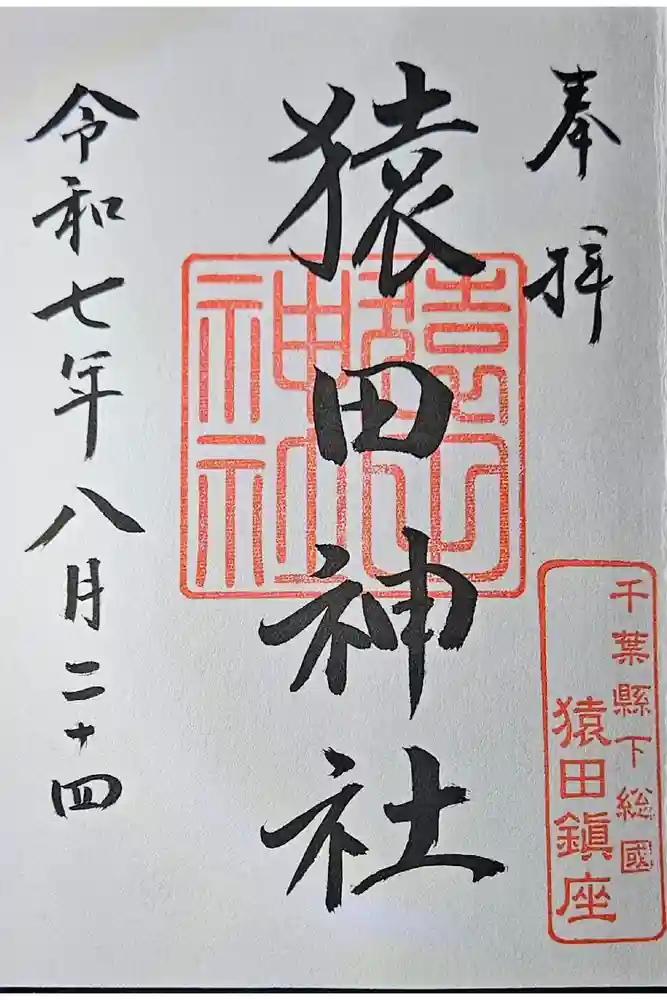 奉拝
千葉縣下総國
猿田鎮座
猿田神社
令和七年八月二十四